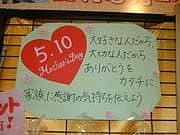 5.10
Mother's Day
大好きな人だから、
大切な人だから
ありがとうを
カタチに
家族に感謝の気持ちを伝えよう
ット